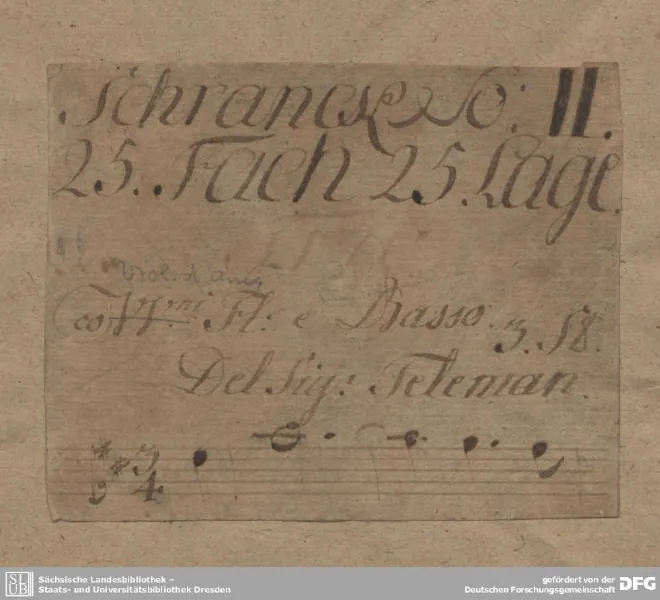 Schranck No: II.
25. Fach 25. Lage.
Viol. d'am.
Co VV:ni Fl: e Basso. 3. St.
Del Sig: Teleman.
3
4
SLUB
Sächsische Landesbibliothek –
Staats- und Universitätsbibliothek Dresden
gefördert von der
Deutschen Forschungsgemeinschaft
DFG